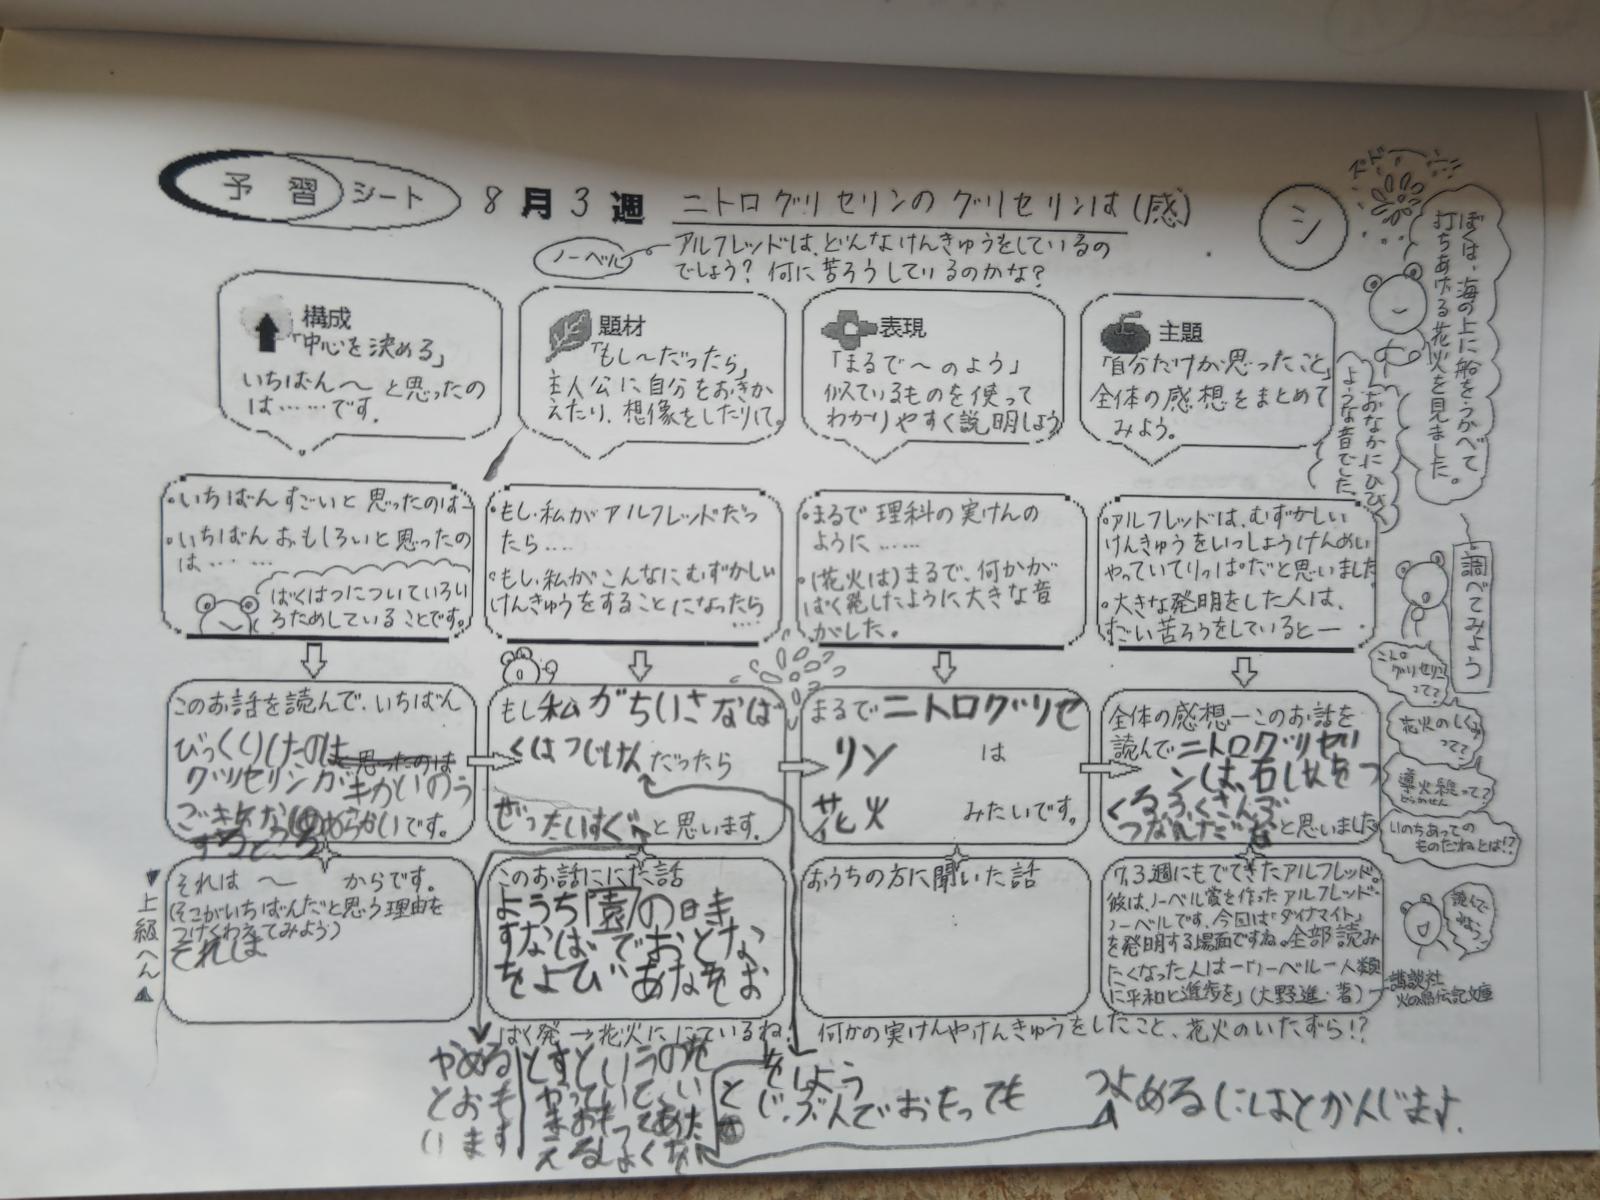 予習シート 8月3週 ニトログリセリンのグリセリンは(感)
シ
ノーベル
アルフレッドは、どんなけんきゅうをしているの
でしょう? 何に苦ろうしているのかな?
構成
「中心を決める」
いちばん〜と思ったの
は……です。
題材
「もし〜だったら」
主人公に自分をおきか
えたり、想像をしたりして。
表現
「まるで〜のよう」
似ているものを使って
わかりやすく説明しよう
主題
「自分だけが思ったこと」
全体の感想をまとめて
みよう。
・いちばんすごいと思ったのは―
・いちばんおもしろいと思ったの
は……
ばくはつについていろい
ろためしていることです。
・もし私がアルフレッドだっ
たら……
・もし、私がこんなにむずかしい
けんきゅうをすることになったら
……
・まるで理科の実けんの
ように……
・(花火は)まるで、何かが
ばく発したように大きな音
がした。
・アルフレッドは、むずかしい
けんきゅうをいっしょうけんめい
やっていてりっぱだと思いました
・大きな発明をした人は、
すごい苦ろうをしていると―
このお話を読んで、いちばん
びっくりしたのは思ったのは
です。
もし私がちいさなば
くはつじけんだったら
ぜったいすぐ と思います。
まるでニトログリセ
リン は
花火 みたいです。
全体の感想―このお話を
読んでニトログリセリ
と思いました
▼上級へん▲
それは 〜 からです。
(そこがいちばんだと思う理由を
つけくわえてみよう)
それは
このお話ににた話
ようち園の時
すなばでおとな
をよび あなをお
おうちの方に聞いた話
7.3週にもでてきたアルフレッド。
彼は、ノーベル賞を作ったアルフレッド・
ノーベルです。今回は「ダイナマイト」
を発明する場面ですね。全部読み
たくなった人は―「ノーベル―人類
に平和と進歩を」(大野進・著)
講談社
火の鳥伝記文庫
ばく発→花火ににているね!
何かの実けんやけんきゅうをしたこと、花火のいたずら!?
やめる
とおも
います
とすというのを
やっていて、い
をしよう
じぶんでおもっても
つよめるにはとかんじます。
ぼくは、海の上に船をうかべて
打ちあげる花火を見ました。
おなかにひびく
ような音でした。
ドド
調べてみよう
ニトログリセリンって?
花火のしくみって?
導火線って?
どうかせん
いのちあっての
ものだねとは!?
読んでね!